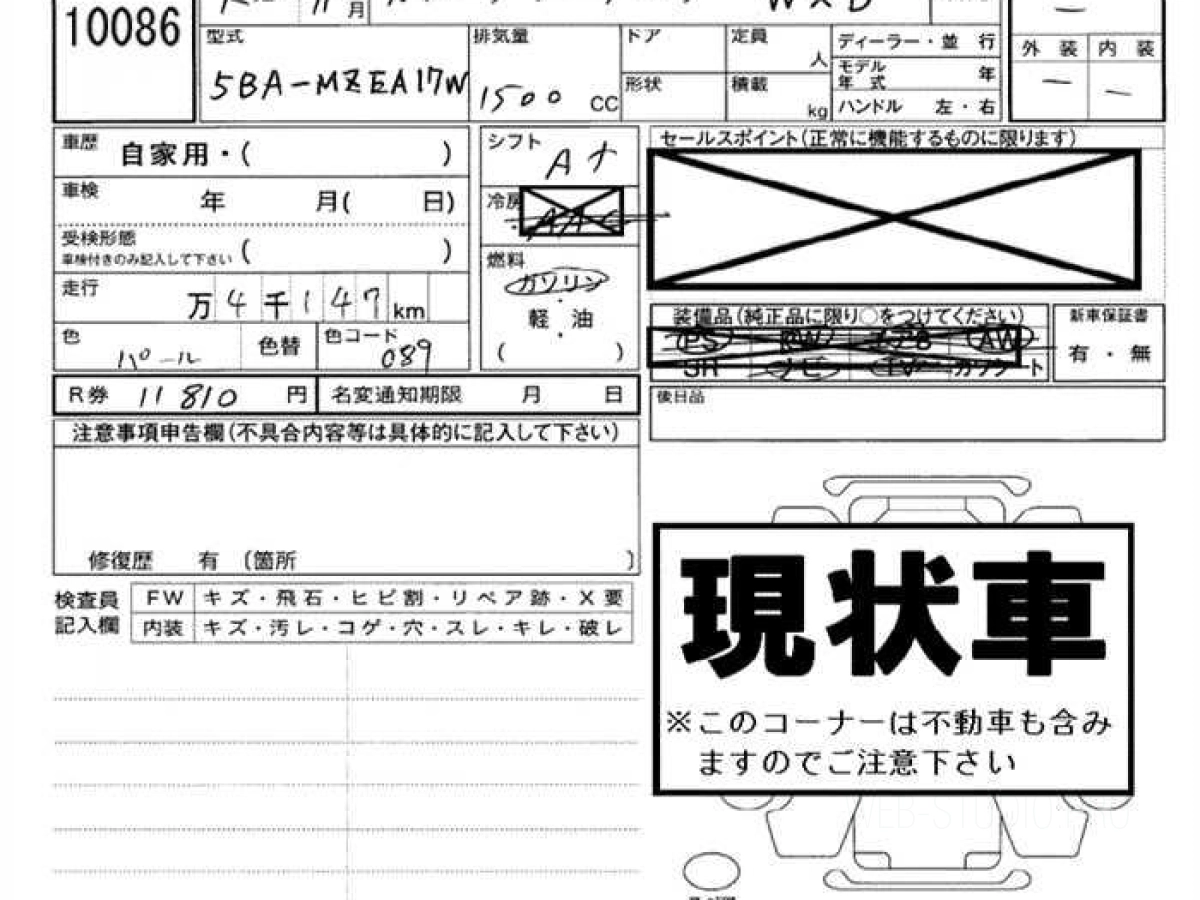 10086
月
型式
5BA-MZEA17W
排気量
1500 CC
ドア
形状
定員
人
積載
kg
ディーラー・並 行
モデル
年 式 年
ハンドル 左・右
外 装 内 装
車歴 自家用・( )
車検 年 月( 日)
受検形態 ( )
車検付きのみ記入して下さい
走行 万 4 千 147 km
色 パール
色替
色コード
089
シフト
AT
冷房
AAC
燃料
ガソリン
・
軽 油
・
( )
セールスポイント(正常に機能するものに限ります)
装備品(純正品に限り○をつけてください)
PS PW エアB AW
SR ナビ TV カワシート
新車保証書
有・無
R券 11810 円
名変通知期限 月 日
後日品
注意事項申告欄(不具合内容等は具体的に記入して下さい)
修復歴 有 (箇所 )
検査員
記入欄
FW キズ・飛石・ヒビ割・リペア跡・X要
内装 キズ・汚レ・コゲ・穴・スレ・キレ・破レ
現状車
※このコーナーは不動車も含み
ますのでご注意下さい